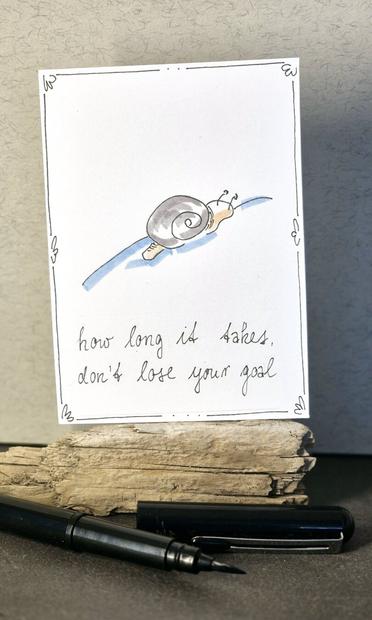 how long it takes,
don't lose your goal